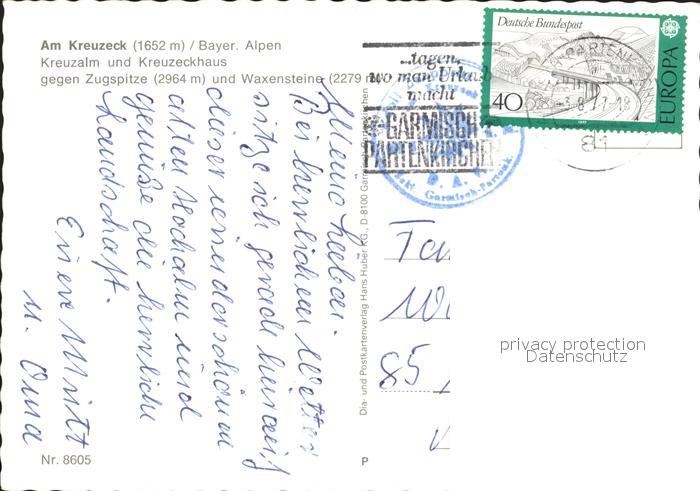 Am Kreuzeck (1652 m) / Bayer. Alpen
Kreuzalm und Kreuzeckhaus
gegen Zugspitze (2964 m) und Waxensteine (2279 m
Meine Lieben.
Bei herrlichem Wetter
sitze ich gerade hier auf
dieser wunderschönen
alten Hochalm und
genieße die herrliche
Landschaft.
Eure Mutti
u. Oma
Nr. 8605
Dia- und Postkartenverlag Hans Huber KG., D-8100 Garmisch-Partenkirchen
P
...tagen,
wo man Urlaub
macht
GARMISCH-
PARTENKIRCHEN
Garmisch-Partenk.
Deutsche Bundespost
40
EUROPA
81
85
privacy protection
Datenschutz